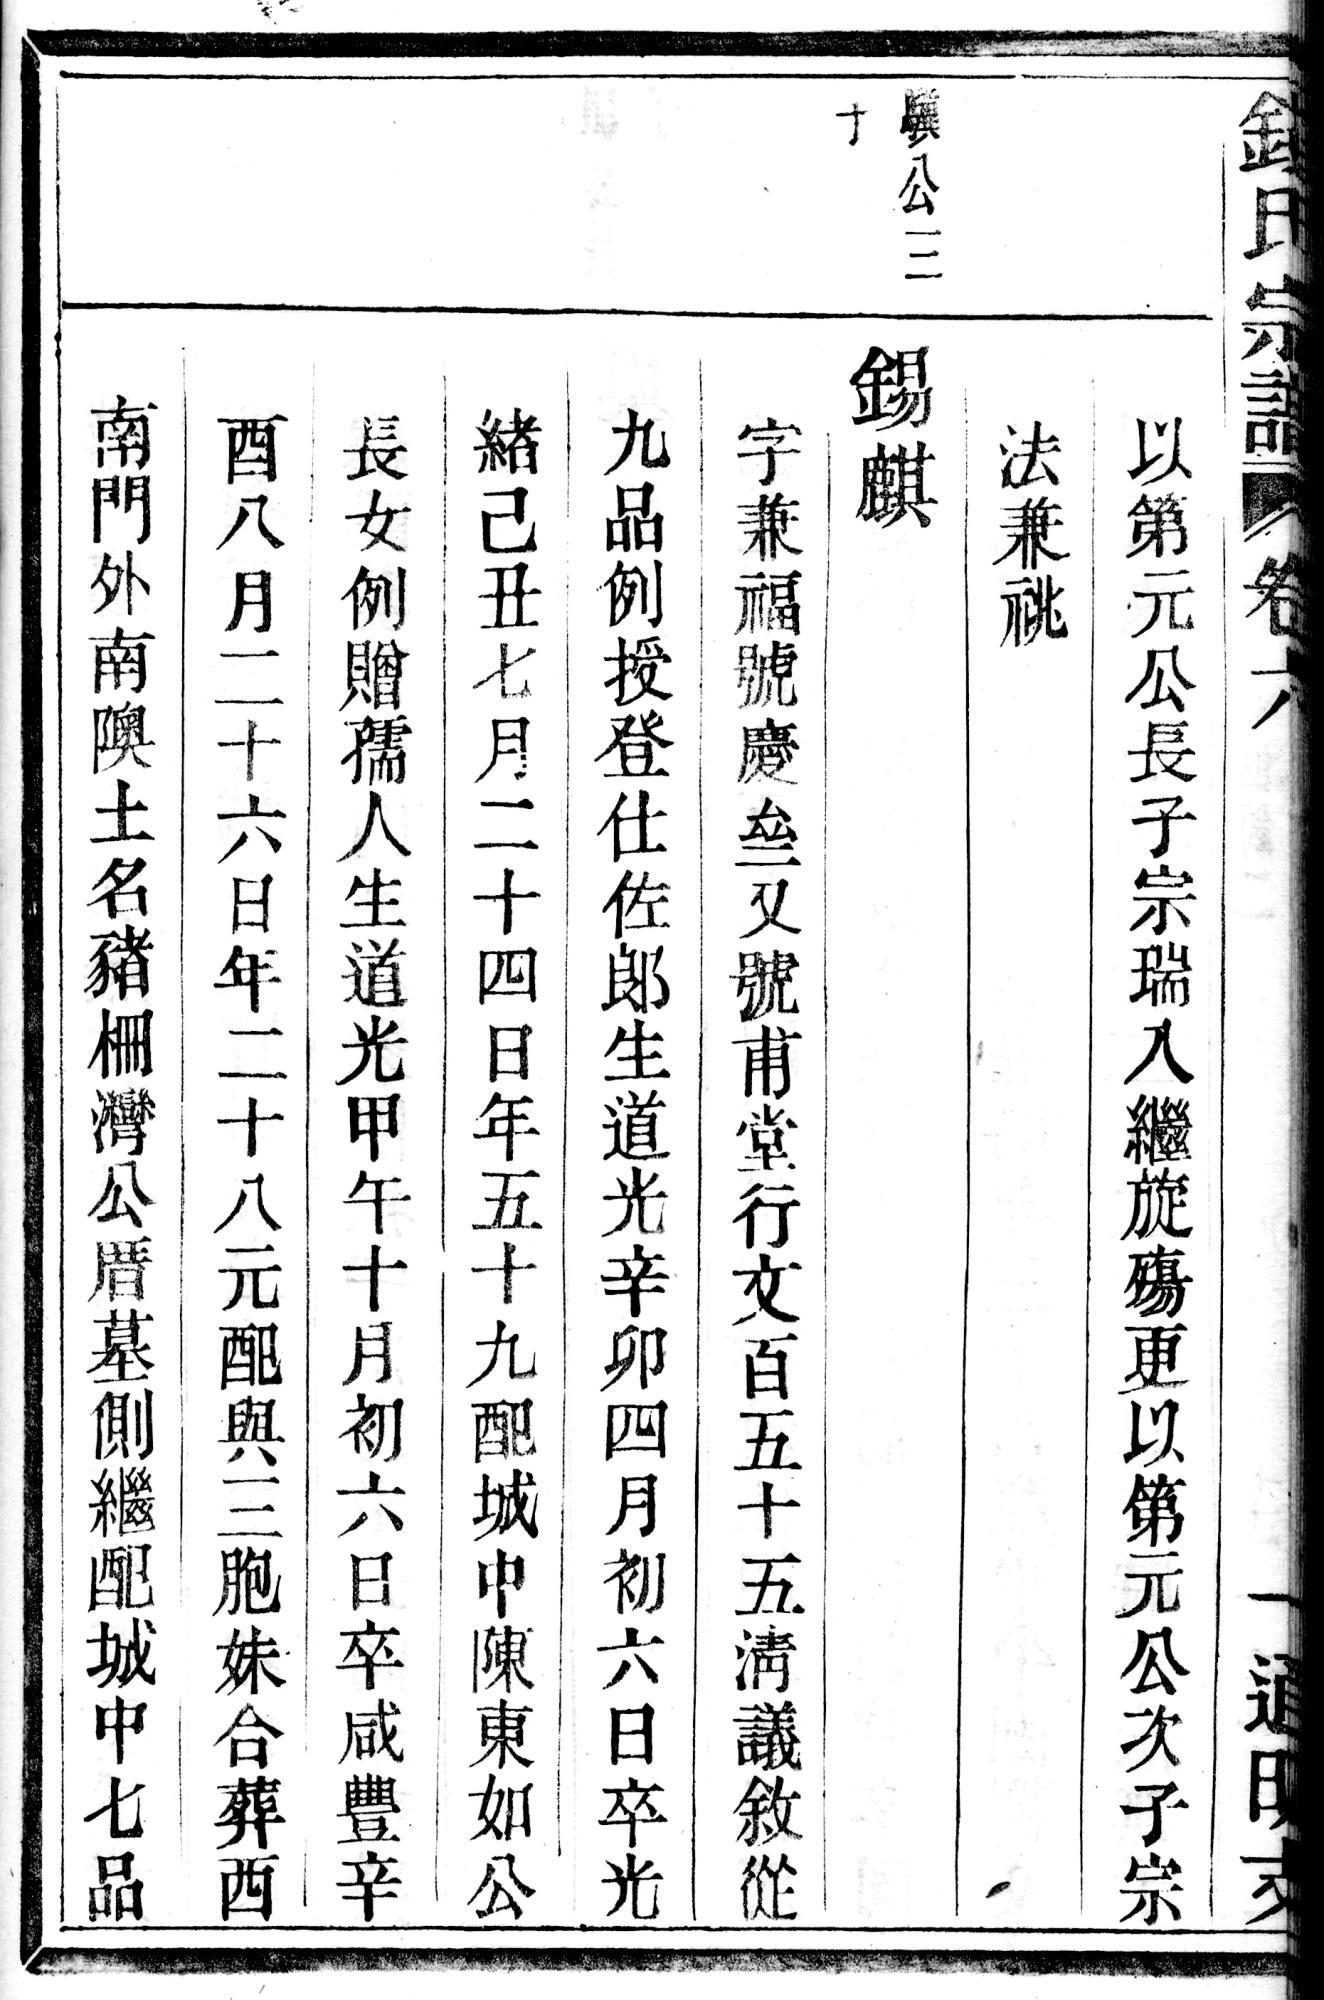 錢氏宗譜 卷六
一
道明支
驥公三
十
以第元公長子宗瑞入繼旋殤更以第元公次子宗
法兼祧
錫麒
字兼福號慶叁又號甫堂行文百五十五淸議敘從
九品例授登仕佐郎生道光辛卯四月初六日卒光
緒己丑七月二十四日年五十九配城中陳東如公
長女例贈孺人生道光甲午十月初六日卒咸豐辛
酉八月二十六日年二十八元配與三胞妹合葬西
南門外南隩土名豬柵灣公厝墓側繼配城中七品